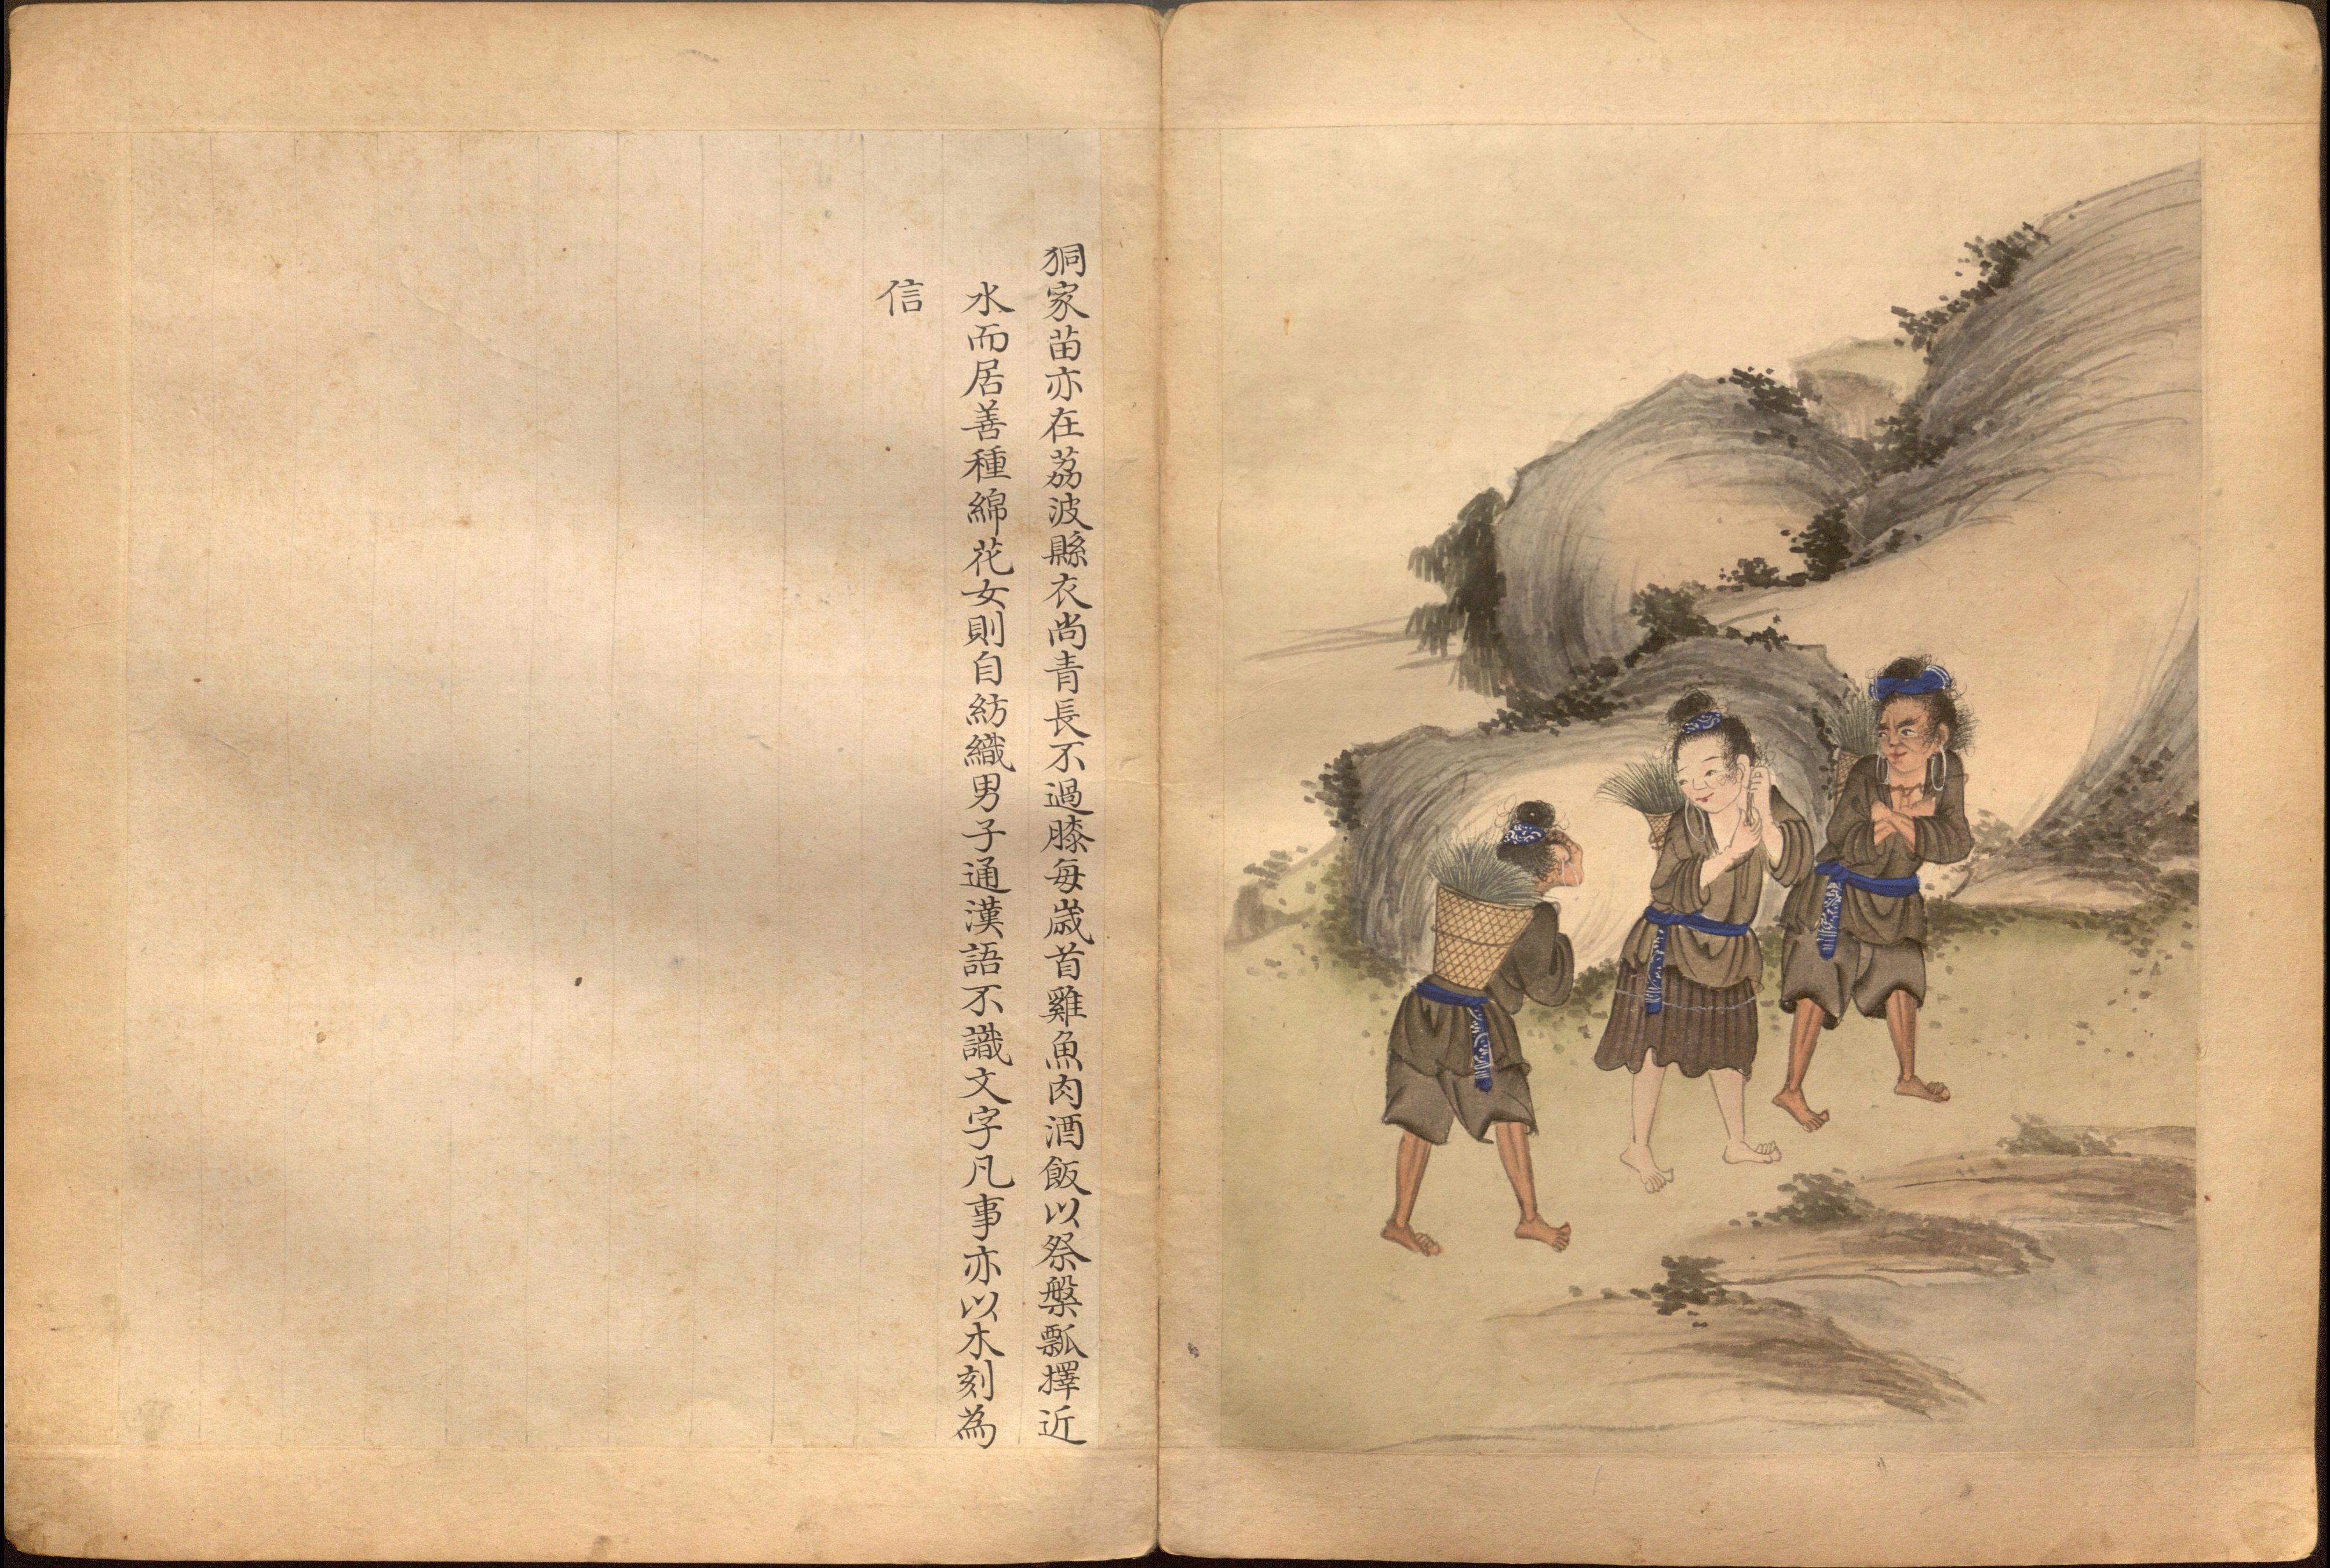 狪家苗亦在荔波縣衣尚青長不過膝每嵗首雞魚肉酒飯以祭槃瓢擇近
水而居善種綿花女則自紡織男子通漢語不識文字凡事亦以木刻為
信